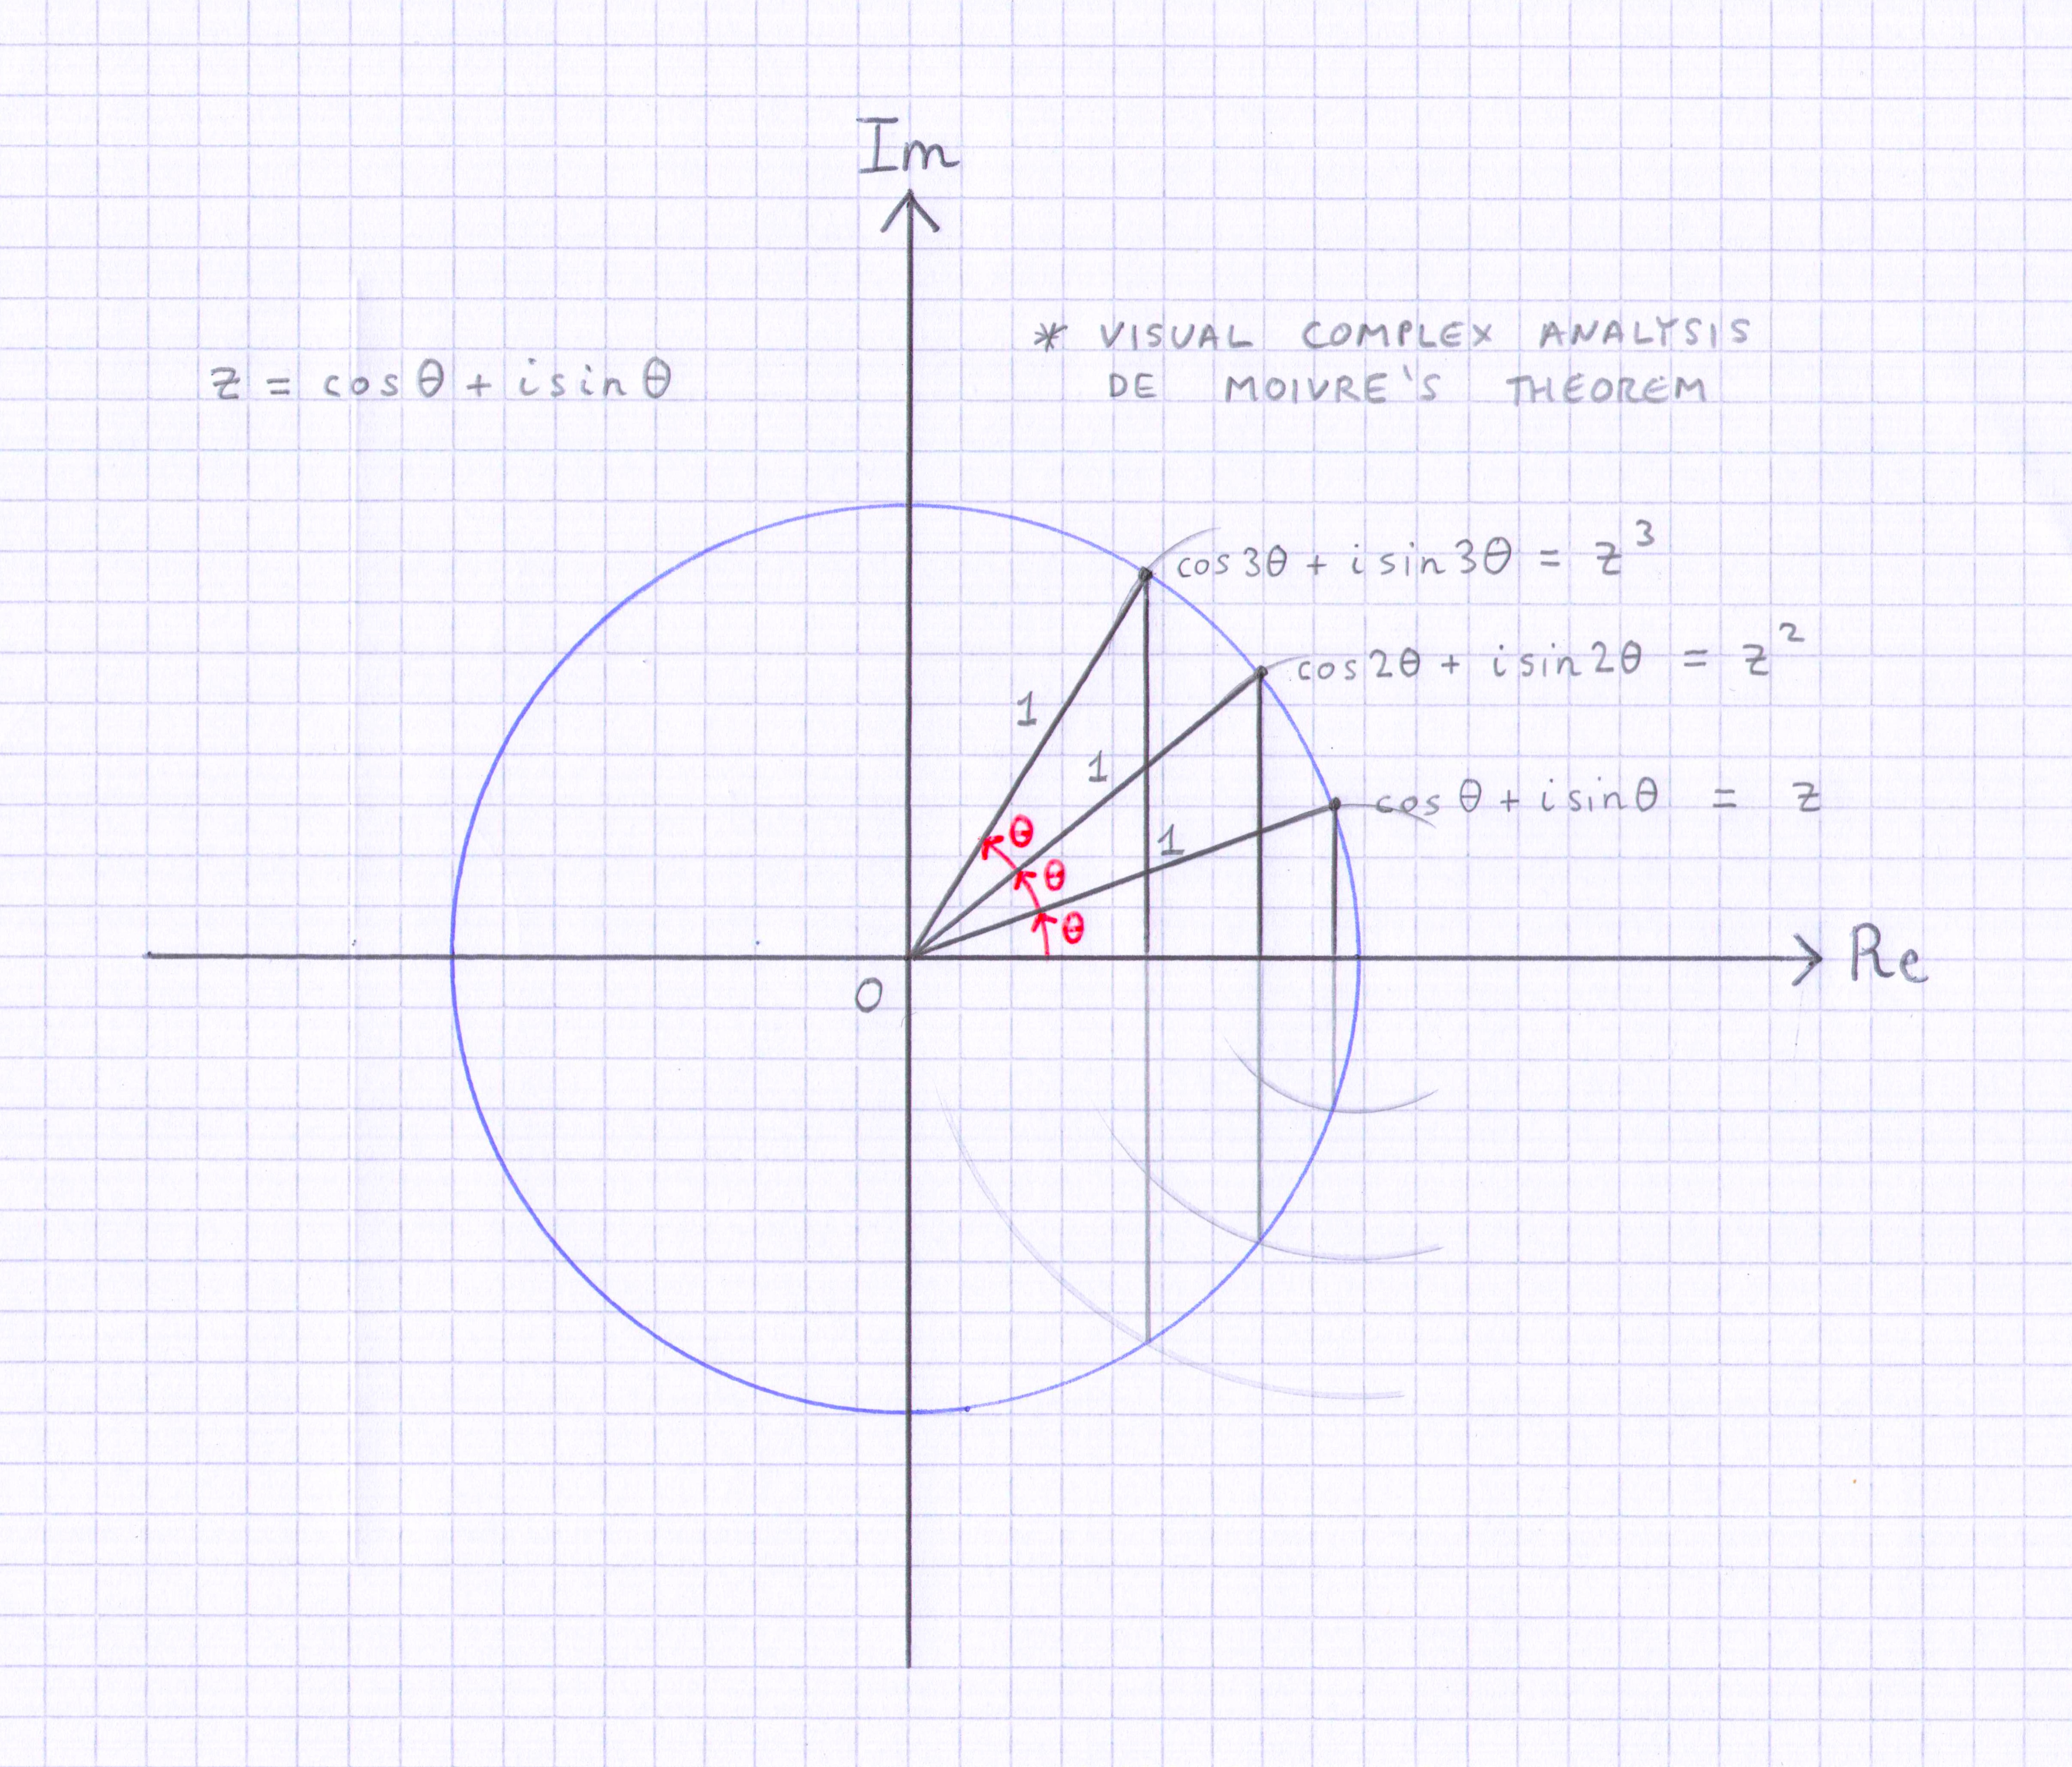 Im
* VISUAL COMPLEX ANALYSIS
DE MOIVRE'S THEOREM
z = cos θ + i sin θ
cos 3θ + i sin 3θ = z³
cos 2θ + i sin 2θ = z²
1
1
cos θ + i sin θ = z
1
θ
θ
θ
Re
O